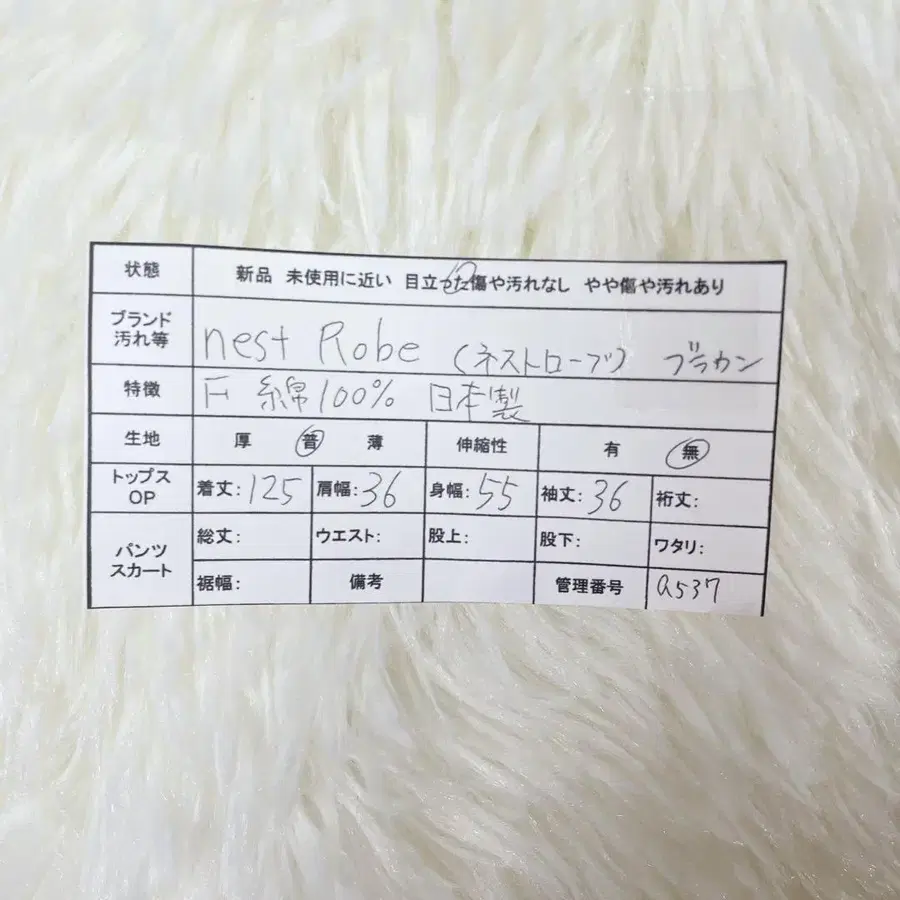 状態 新品 未使用に近い 目立った傷や汚れなし やや傷や汚れあり
ブランド
汚れ等 nest Robe (ネストローブ) ブラカン
特徴 F 綿100% 日本製
生地 厚 普 薄 伸縮性 有 無
トップス
OP 着丈:125 肩幅:36 身幅:55 袖丈:36 裄丈:
パンツ
スカート 総丈: ウエスト: 股上: 股下: ワタリ:
裾幅: 備考 管理番号 a537